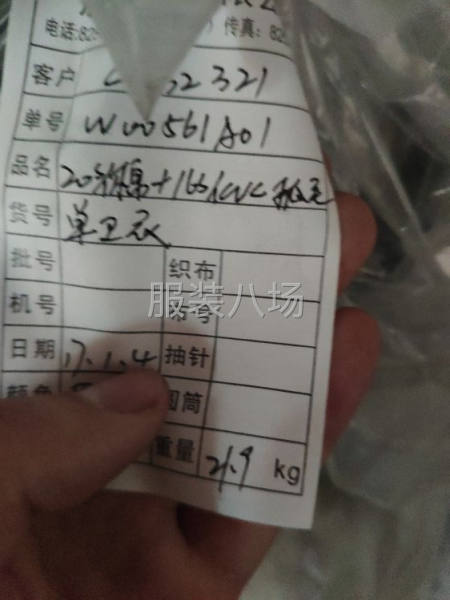 电话:82 传真: 82
客户 32321
单号 W00561A01
品名 20 棉+16S CVC
货号 单卫衣
批号 织布
机号
日期 17.1.4 抽针
颜色 圆筒
重量 21.9 kg
服装八场